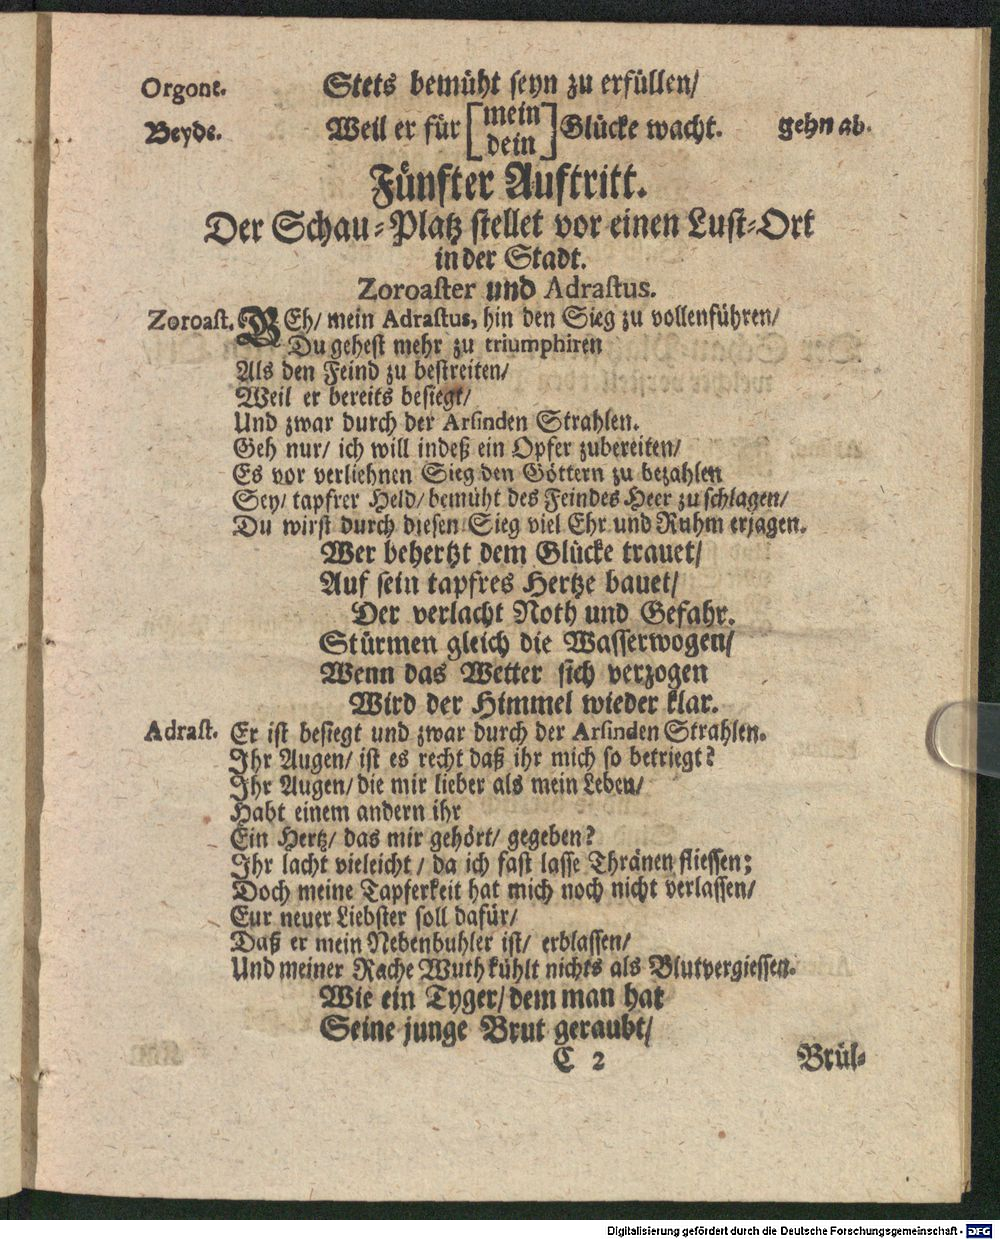 Orgone. Stets bemüht seyn zu erfüllen/
Beyde. Weil er für [mein dein] Glücke wacht. gehn ab.
Fünfter Auftritt.
Der Schau-Platz stellet vor einen Lust-Ort
in der Stadt.
Zoroaster und Adrastus.
Zoroast. GEh/ mein Adrastus, hin den Sieg zu vollenführen/
Du gehest mehr zu triumphiren
Als den Feind zu bestreiten/
Weil er bereits besiegt/
Und zwar durch der Arsinden Strahlen.
Geh nur/ ich will indeß ein Opfer zubereiten/
Es vor verliehnen Sieg den Göttern zu bezahlen
Sey/ tapfrer Held/ bemüht des Feindes Heer zu schlagen/
Du wirst durch diesen Sieg viel Ehr und Ruhm erjagen.
Wer behertzt dem Glücke trauet/
Auf sein tapfres Hertze bauet/
Der verlacht Noth und Gefahr.
Stürmen gleich die Wasserwogen/
Wenn das Wetter sich verzogen
Wird der Himmel wieder klar.
Adrast. Er ist besiegt und zwar durch der Arsinden Strahlen.
Ihr Augen/ ist es recht daß ihr mich so betriegt?
Ihr Augen/ die mir lieber als mein Leben/
Habt einem andern ihr
Ein Hertz/ das mir gehört/ gegeben?
Ihr lacht vieleicht/ da ich fast lasse Thränen fliessen;
Doch meine Tapferkeit hat mich noch nicht verlassen/
Eur neuer Liebster soll dafür/
Daß er mein Nebenbuhler ist/ erblassen/
Und meiner Rache Wuth kühlt nichts als Blutvergiessen.
Wie ein Tyger/ dem man hat
Seine junge Brut geraubt/
C 2 Brül-
Digitalisierung gefördert durch die Deutsche Forschungsgemeinschaft - DFG